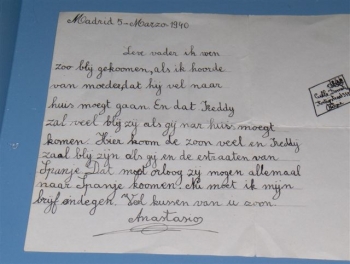 Madrid 5-Marzo 1940
Leve vader ik wen
zoo bly gekoomen, als ik hoorde
van moeder, dat hy vel naar
huis moegt gaan. En dat Freddy
zal veel bly zy als gy nar huis moegt
komen. Hier koom de zoon veel en Freddy
zaal bly zijn als gy en de estraaten van
Spanje. Dat most orloog zy mogen allemaal
naar Spanje koomen. Nu moet ik mijn
bryf endegen. Vel kussen van u zoon
Anastasio
Calle